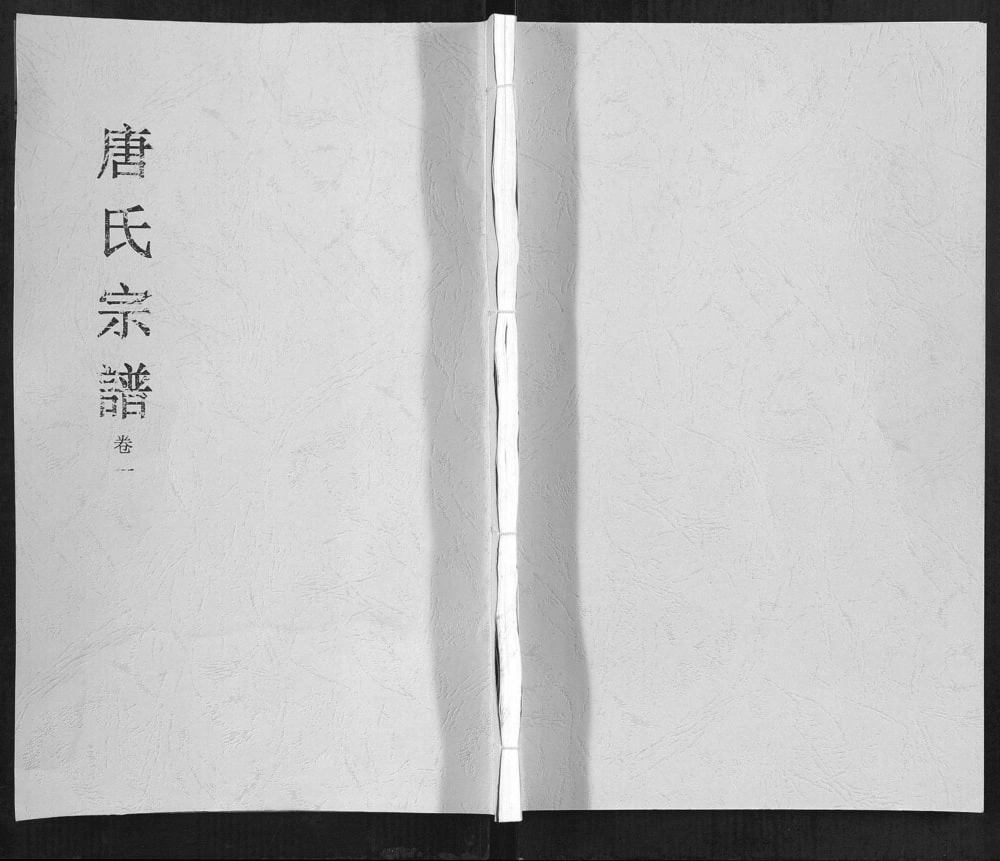 唐氏宗譜
卷一